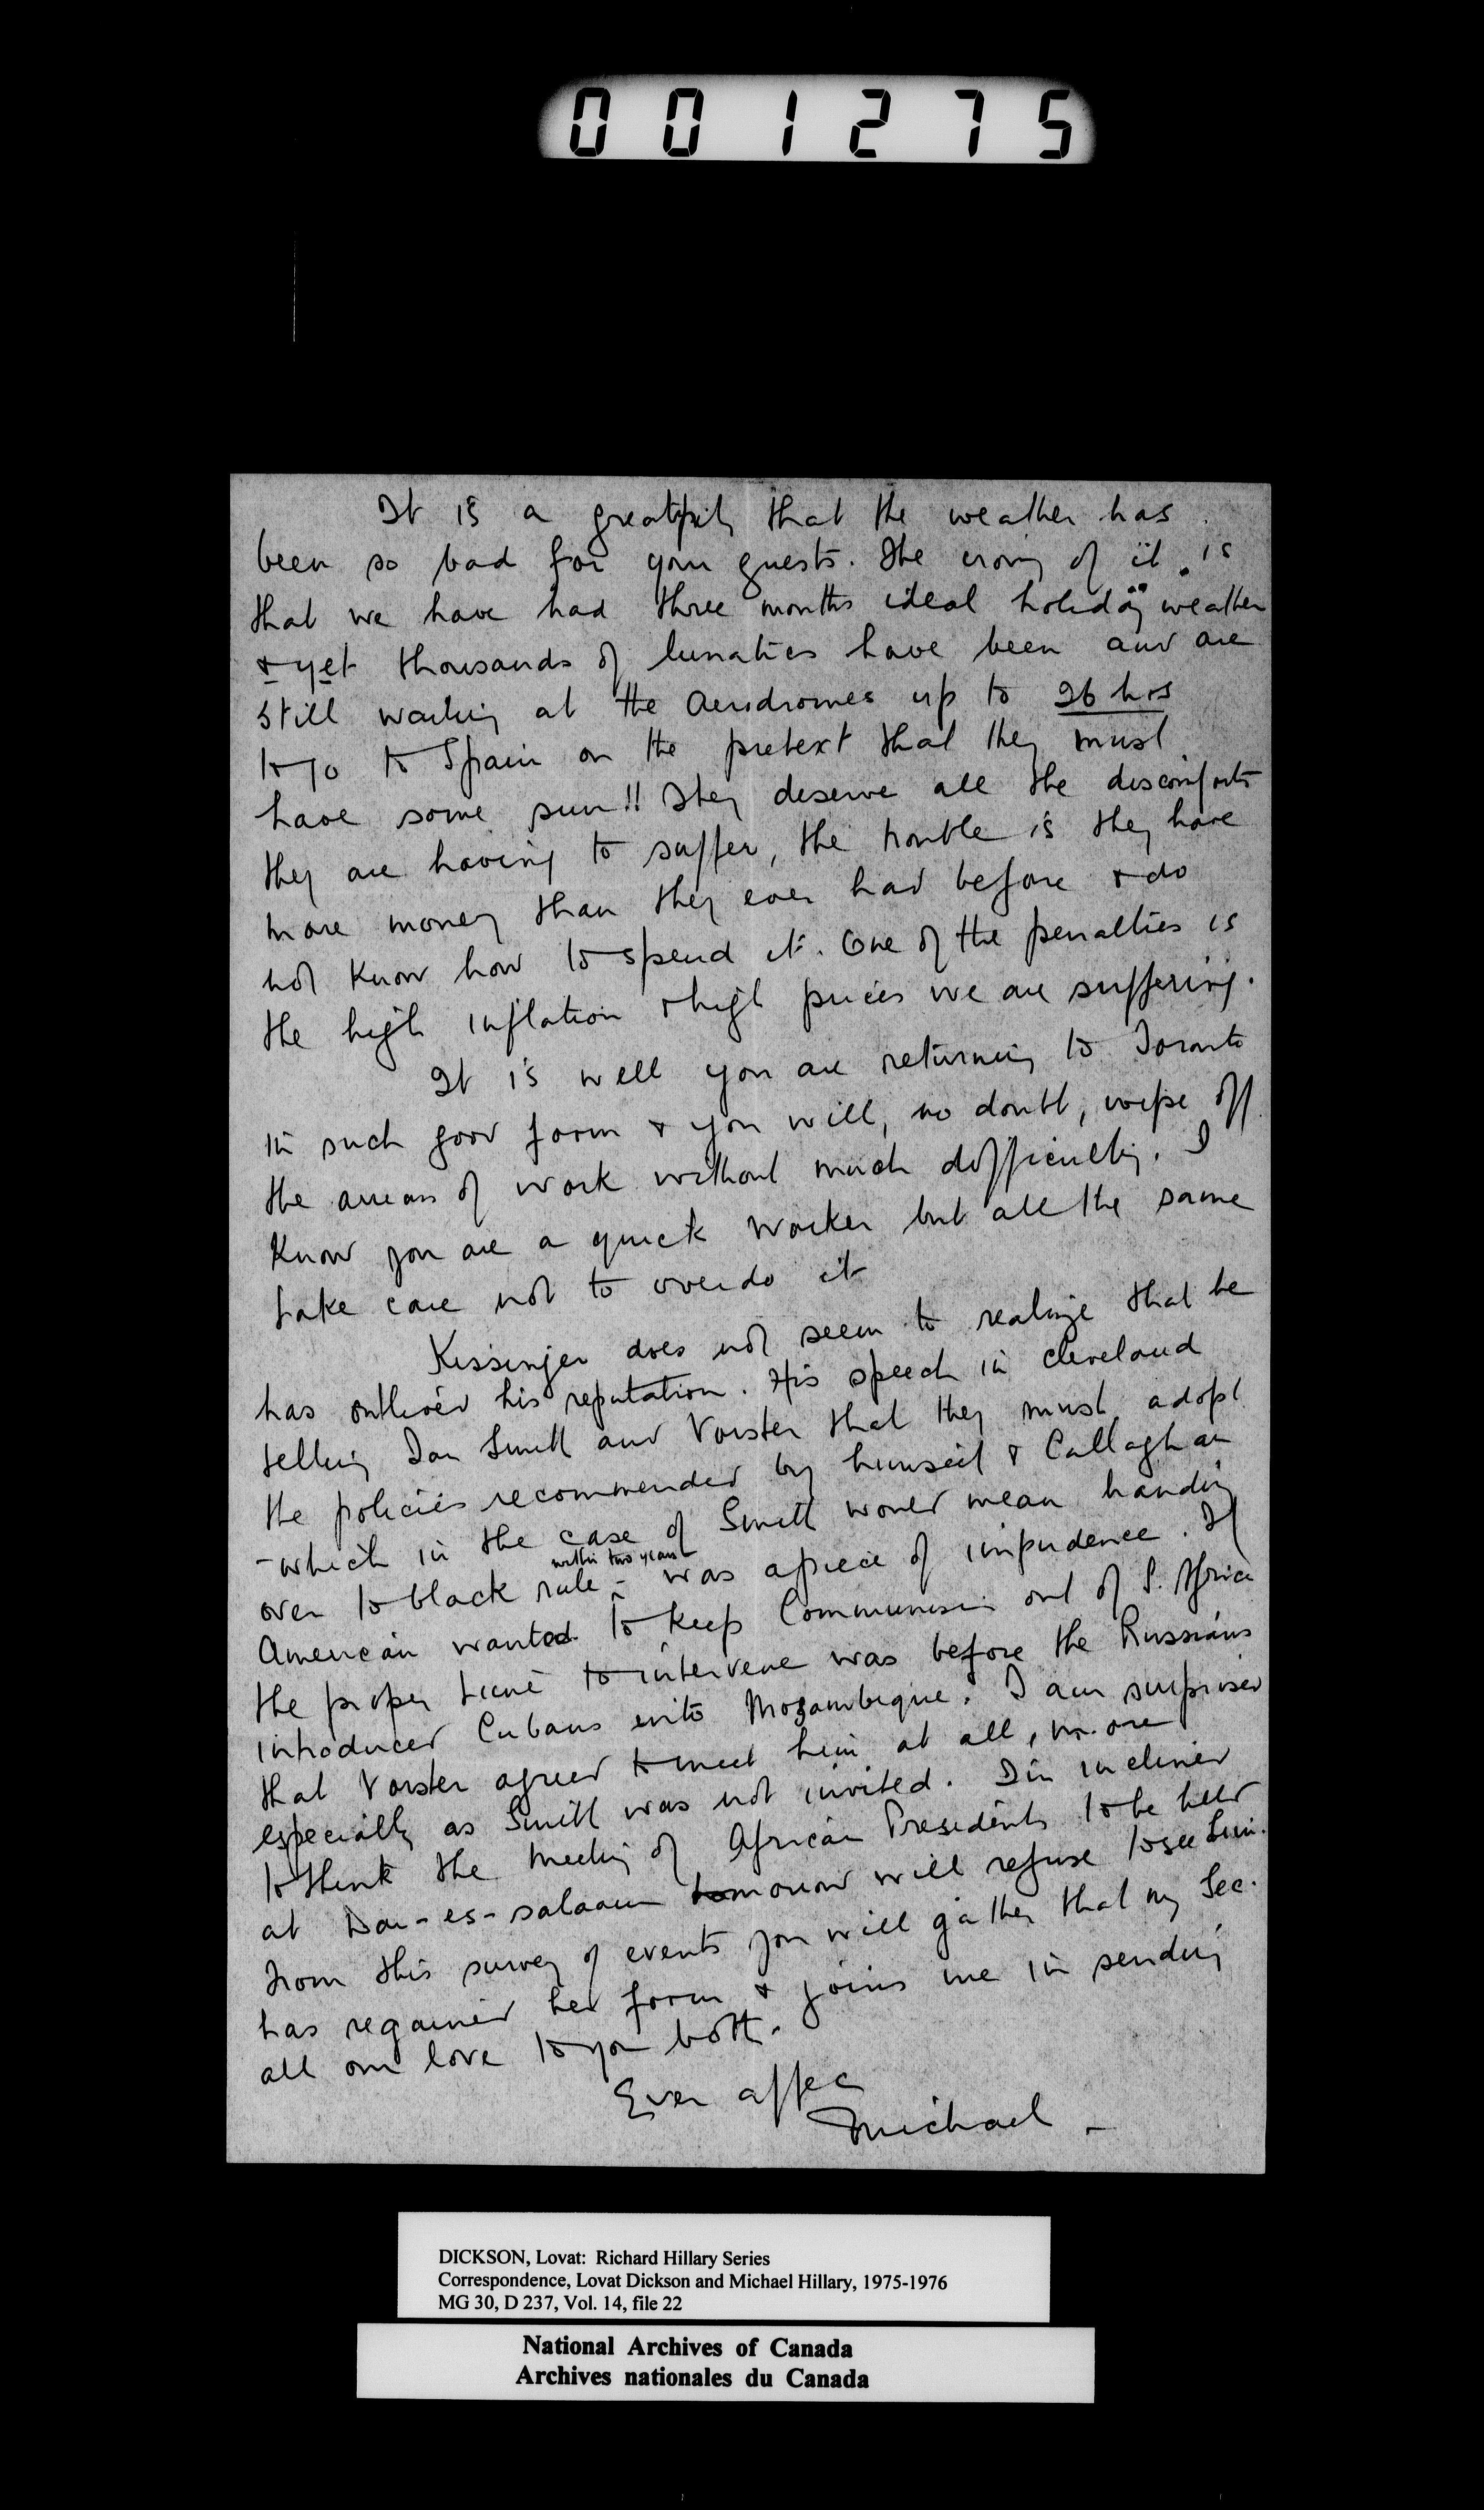 001275
It is a great pity that the weather has
been so bad for your guests. The irony of it is
that we have had three months ideal holiday weather
& yet thousands of lunatics have been and are
still waiting at the aerodromes up to 26 hrs
to go to Spain on the pretext that they must
have some sun!! They deserve all the discomforts
they are having to suffer, the trouble is they have
more money than they ever had before & do
not know how to spend it. One of the penalties is
the high inflation & high prices we are suffering.
It is well you are returning to Toronto
in such good form & you will, no doubt, wipe off
the arrears of work without much difficulty. I
know you are a quick worker but all the same
take care not to overdo it
Kissinger does not seem to realize that he
has outlived his reputation. His speech in Cleveland
telling Ian Smith and Vorster that they must adopt
the policies recommended by himself & Callaghan
- which in the case of Smith would mean handing
over to black rule within two years - was a piece of impudence. If
American wanted to keep Communism out of S. Africa
the proper time to intervene was before the Russians
introduced Cubans into Mozambique. I am surprised
that Vorster agreed to meet him at all, more
especially as Smith was not invited. I'm inclined
to think the meeting of African Presidents to be held
at Dar-es-salaam tomorrow will refuse to see him.
From this survey of events you will gather that my Sec.
has regained her form & joins me in sending
all our love to you both.
Ever affec
Michael -
DICKSON, Lovat: Richard Hillary Series
Correspondence, Lovat Dickson and Michael Hillary, 1975-1976
MG 30, D 237, Vol. 14, file 22
National Archives of Canada
Archives nationales du Canada